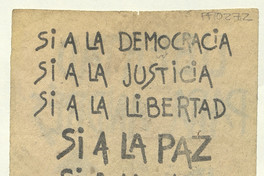 SI A LA DEMOCRACIA
SI A LA JUSTICIA
SI A LA LIBERTAD
SI A LA PAZ
SI A LA